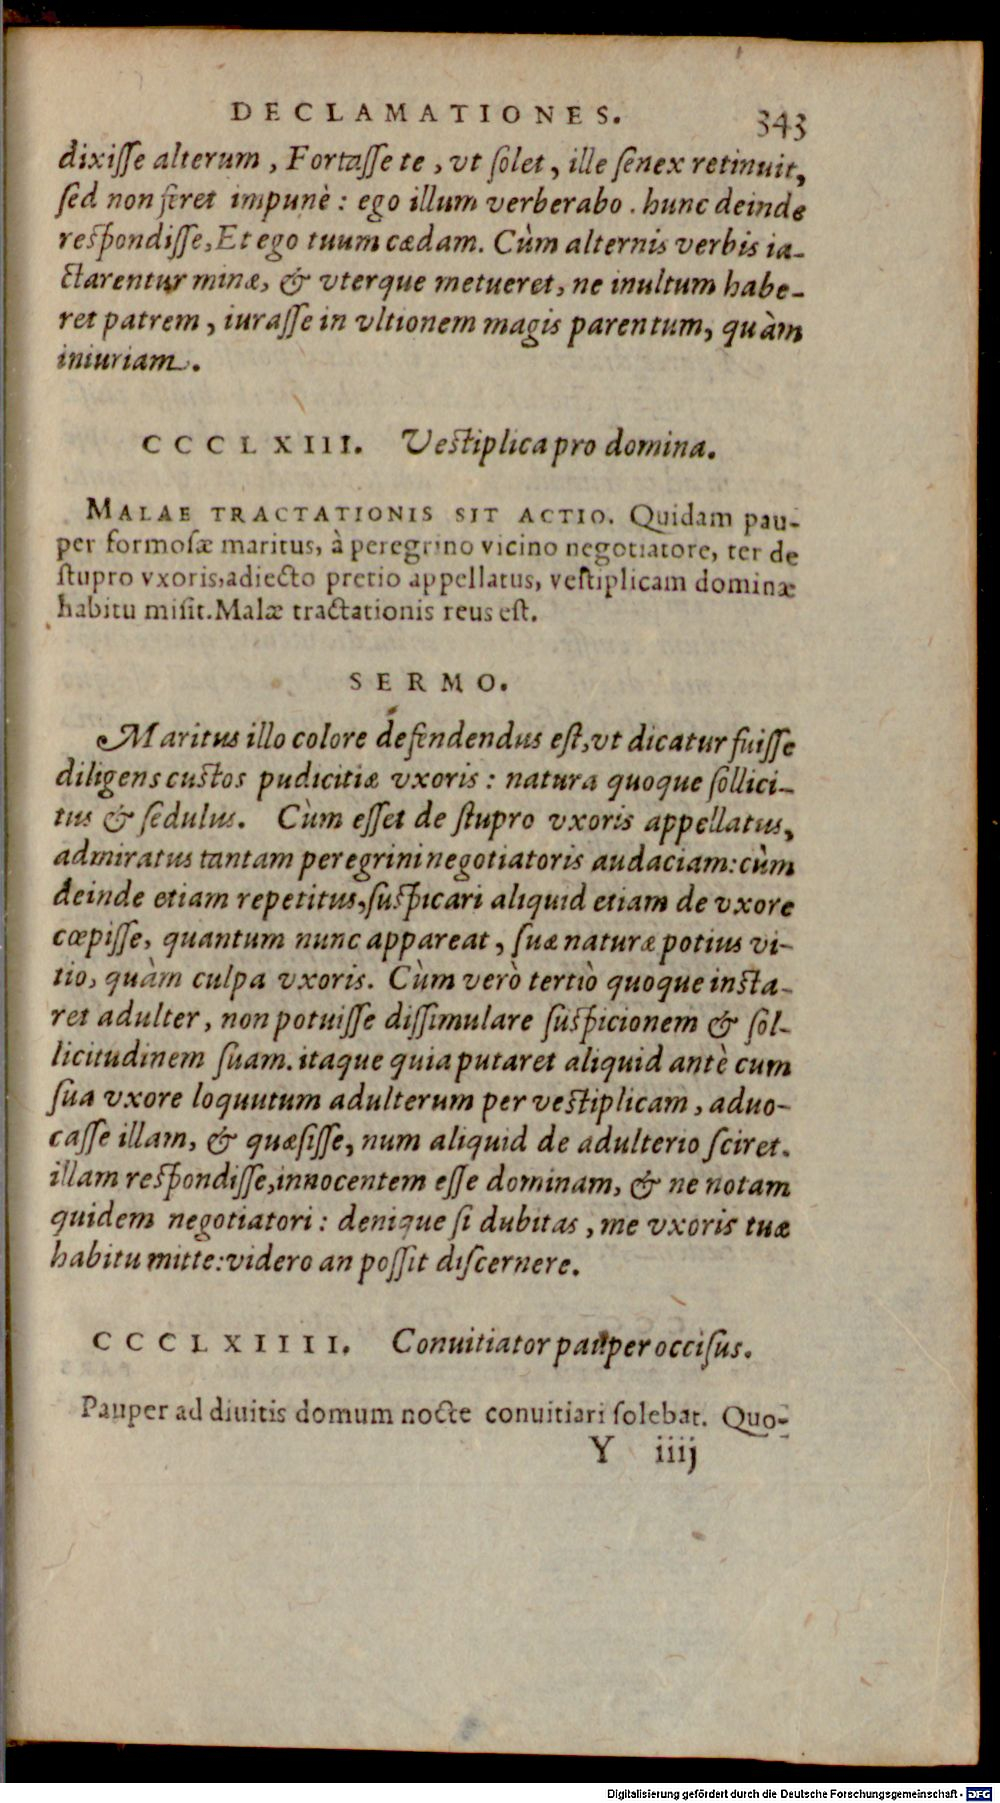 DECLAMATIONES. 343
dixiſſe alterum, Fortaſſe te, vt ſolet, ille ſenex retinuit,
ſed non feret impunè: ego illum verberabo. hunc deinde
reſpondiſſe, Et ego tuum cædam. Cùm alternis verbis ia-
ctarentur minæ, & vterque metueret, ne inultum habe-
ret patrem, iuraſſe in vltionem magis parentum, quàm
iniuriam.
CCCLXIII. Veſtiplica pro domina.
MALAE TRACTATIONIS SIT ACTIO. Quidam pau-
per formoſæ maritus, à peregrino vicino negotiatore, ter de
ſtupro vxoris, adiecto pretio appellatus, veſtiplicam dominæ
habitu miſit. Malæ tractationis reus eſt.
SERMO.
Maritus illo colore defendendus eſt, vt dicatur fuiſſe
diligens cuſtos pudicitiæ vxoris: natura quoque ſollici-
tus & ſedulus. Cùm eſſet de ſtupro vxoris appellatus,
admiratus tantam peregrini negotiatoris audaciam: cùm
deinde etiam repetitus, ſuſpicari aliquid etiam de vxore
cœpiſſe, quantum nunc appareat, ſuæ naturæ potius vi-
tio, quàm culpa vxoris. Cùm verò tertiò quoque inſta-
ret adulter, non potuiſſe diſſimulare ſuſpicionem & ſol-
licitudinem ſuam. itaque quia putaret aliquid antè cum
ſua vxore loquutum adulterum per veſtiplicam, aduo-
caſſe illam, & quæſiſſe, num aliquid de adulterio ſciret.
illam reſpondiſſe, innocentem eſſe dominam, & ne notam
quidem negotiatori: denique ſi dubitas, me vxoris tuæ
habitu mitte: videro an poſſit diſcernere.
CCCLXIIII. Conuitiator pauper occiſus.
Pauper ad diuitis domum nocte conuitiari ſolebat. Quo-
Y iiij
Digitalisierung gefördert durch die Deutsche Forschungsgemeinschaft - DFG